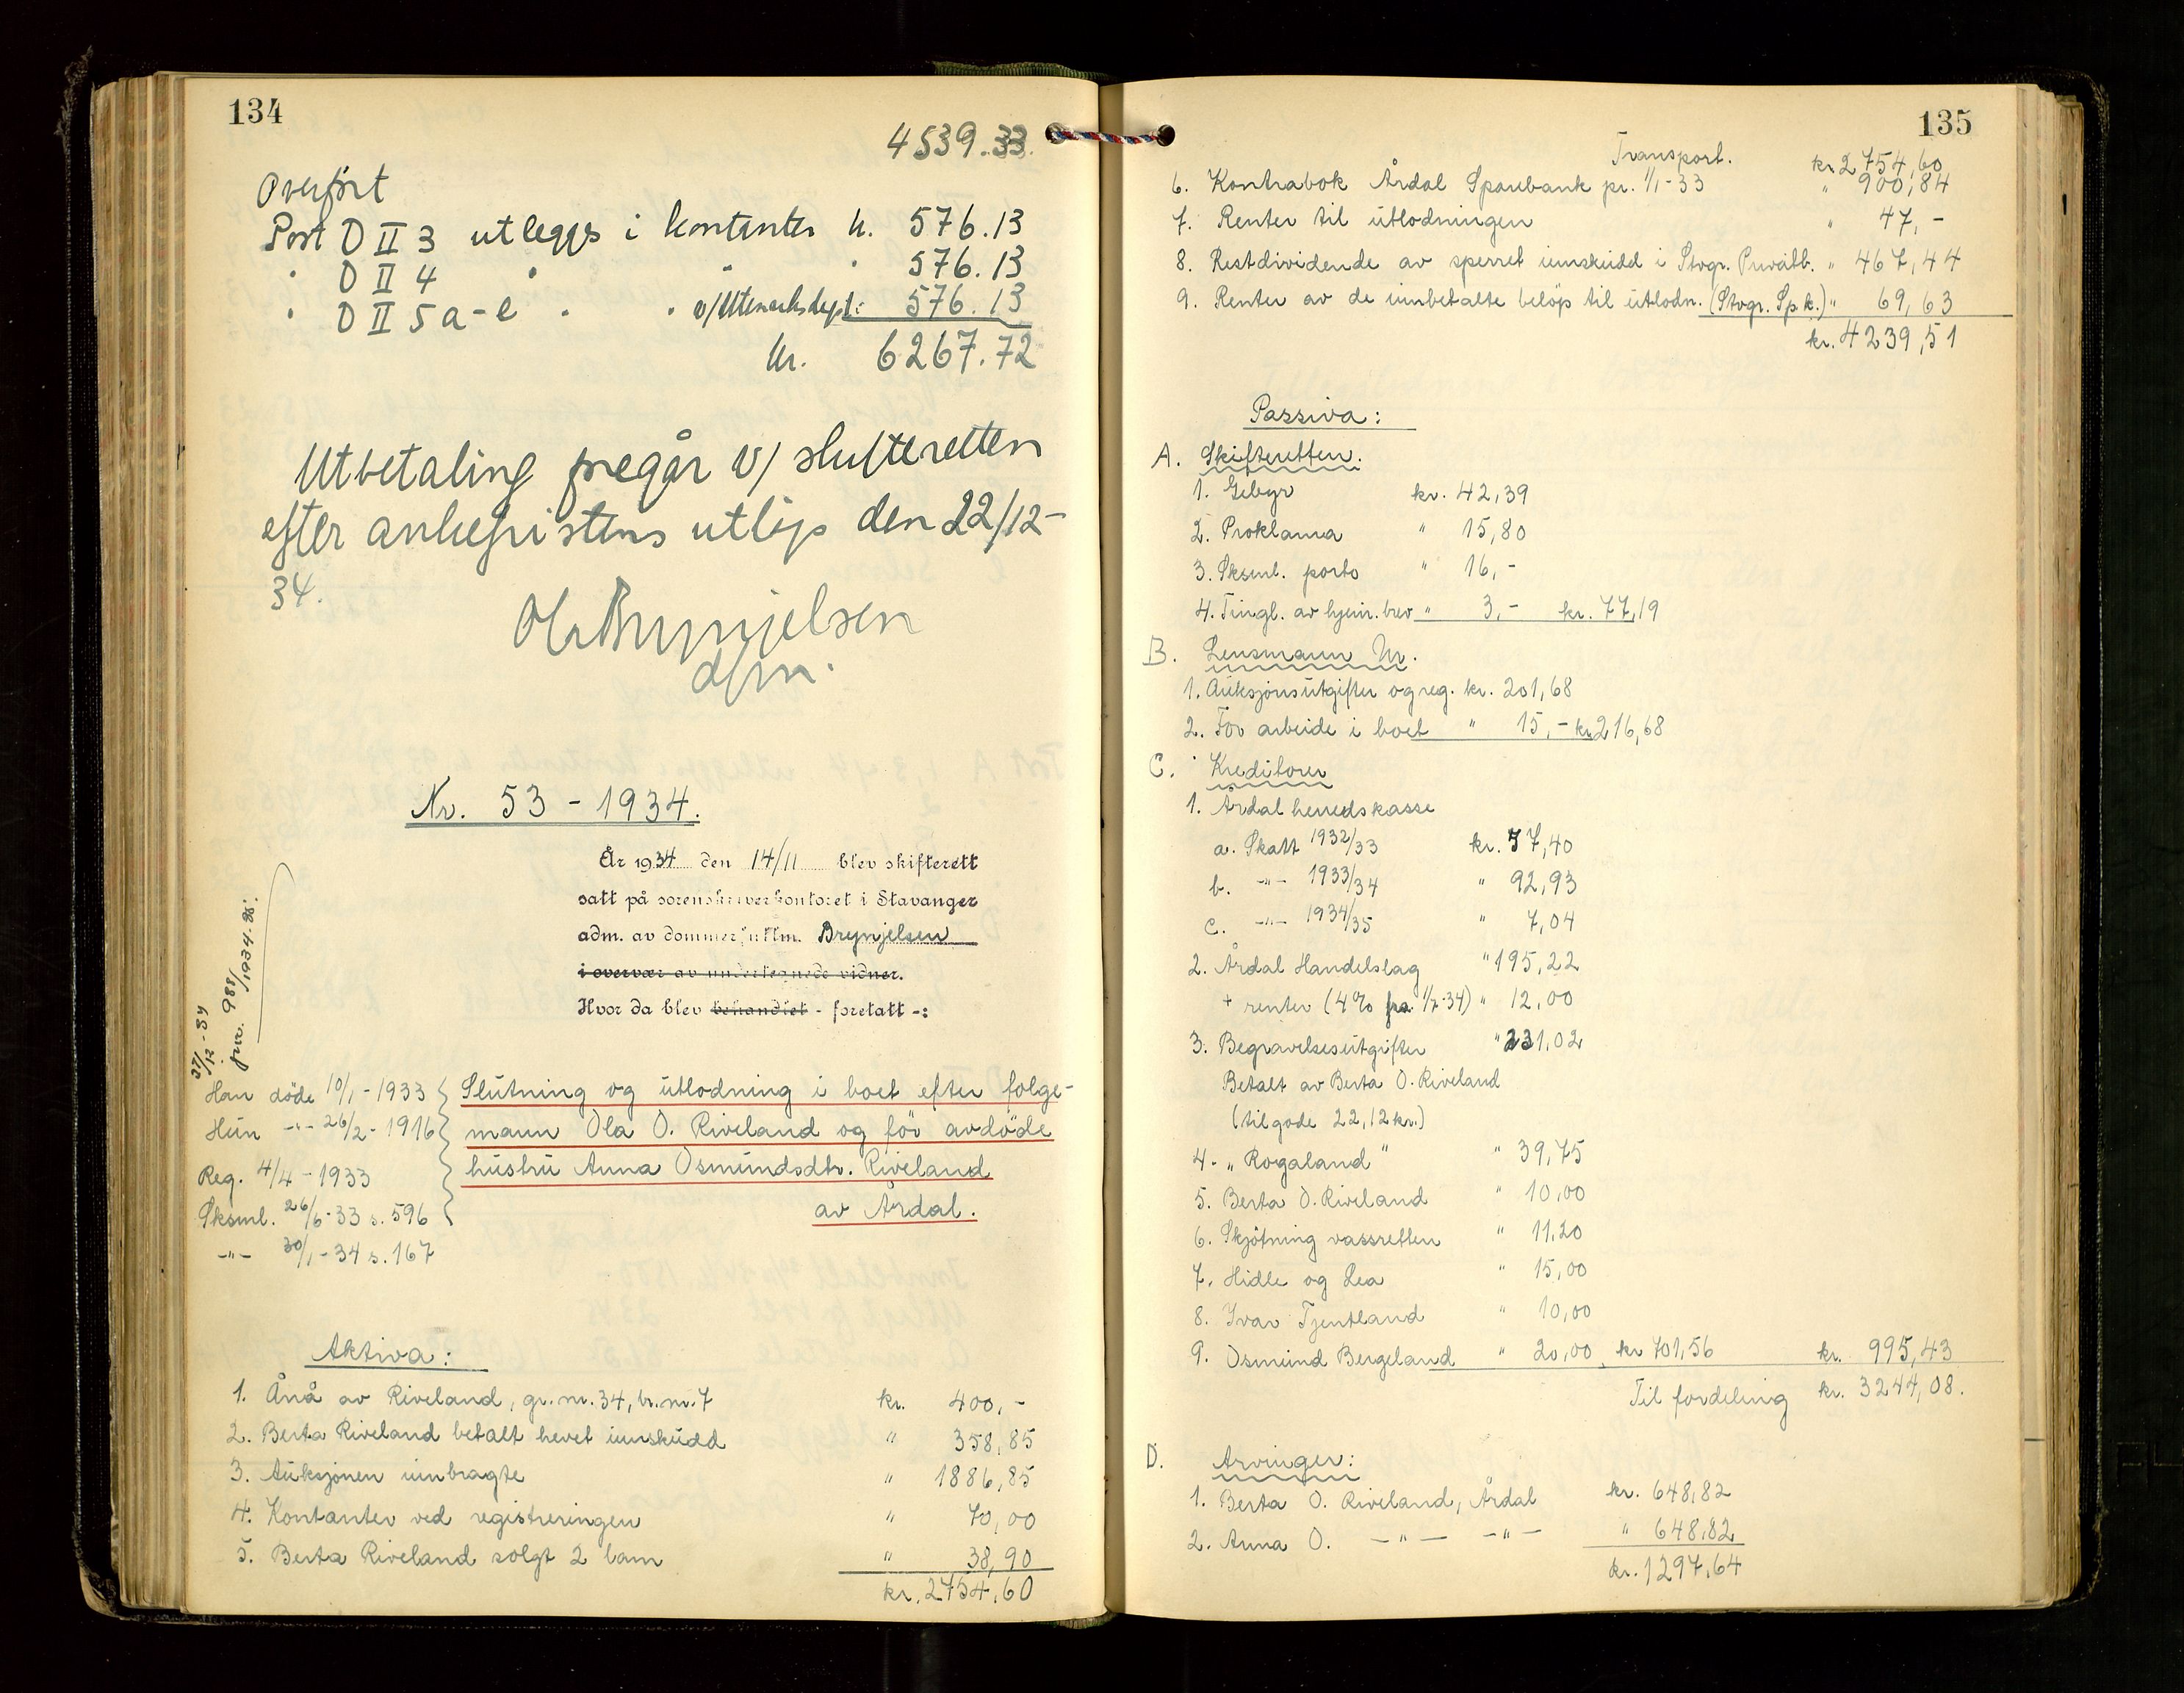 134
4539.33.
Overført
Post D II 3 utlegges i kontanter kr. 576.13
" D II 4 " " " 576.13
" D II 5 a-e " " v/Utenriksdept: 576.13
kr. 6267.72
Utbetaling foregår v/ skifteretten
efter ankefristens utløp den 22/12-
34.
Brynjelsen
dfm.
Nr. 53 - 1934.
År 1934 den 14/11 blev skifterett
satt på sorenskriverkontoret i Stavanger
adm. av dommerfullm. Brynjelsen
i overvær av undertegnede vidner.
Hvor da blev behandlet - foretatt -:
27/12-34
jnr. 988/1934-35:
Han döde 10/1-1933
Hun -"- 26/2-1916
Reg. 4/4-1933
Sksml. 26/6-33 s. 596
-"- 30/1-34 s. 167
Slutning og utlodning i boet efter folge-
mann Ola O. Riveland og för avdöde
hustru Anna Osmundsdtr. Riveland
av Årdal.
Aktiva:
1. Ånå av Riveland, gr.nr. 34, br.nr. 7 kr. 400,-
2. Berta Riveland betalt hevet innskudd " 358,85
3. Auksjonen innbragte " 1886,85
4. Kontanter ved registreringen " 70,00
5. Berta Riveland solgt 2 lam " 38,90
kr. 2754,60
135
Transport. kr. 2754,60
6. Kontrabok Årdal Sparebank pr. 1/1-33 " 900,84
7. Renter til utlodningen " 47,-
8. Restdividende av sperret innskudd i Stvgr. Privatb. " 467,44
9. Renter av de innbetalte belöp til utlodn. (Stvgr. Sp.k.) " 69,63
kr. 4239,51
Passiva:
A. Skifteretten.
1. Gebyr kr. 42,39
2. Proklama " 15,80
3. Sksml. porto " 16,-
4. Tingl. av hjem.brev " 3,- kr. 77,19
B. Lensmann Nr.
1. Auksjonsutgifter og reg. kr. 201,68
2. For arbeide i boet " 15,- kr. 216,68
C. Kreditorer
1. Årdal herredskasse
a. Skatt 1932/33 kr. 37,40
b. -"- 1933/34 " 92,93
c. -"- 1934/35 " 7,04
2. Årdal Handelslag " 195,22
+ renter (4% fra 1/7-34) " 12,00
3. Begravelsesutgifter " 231,02
Betalt av Berta O. Riveland
(tilgode 22,12 kr.)
4. "Rogaland" " 39,75
5. Berta O. Riveland " 10,00
6. Skjötning vassretten " 11,20
7. Hidle og Lea " 15,00
8. Ivar Tjentland " 10,00
9. Osmund Bergeland " 20,00 kr 701,56 kr. 995,43
Til fordeling kr. 3244,08.
D. Arvinger:
1. Berta O. Riveland, Årdal kr. 648,82
2. Anna O. -"- -"- " 648,82
kr. 1297,64